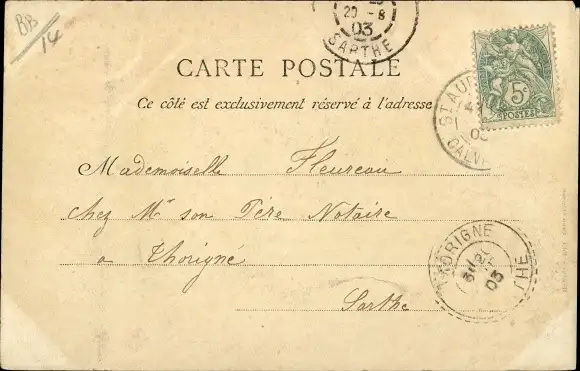 BB
14
20 - 8
03
SARTHE
CARTE POSTALE
Ce côté est exclusivement réservé à l'adresse
5c
POSTES
ST AU
03
Mademoiselle Fleureau
chez Mr son Père Notaire
a Thorigné
Sarthe
THORIGNE
03